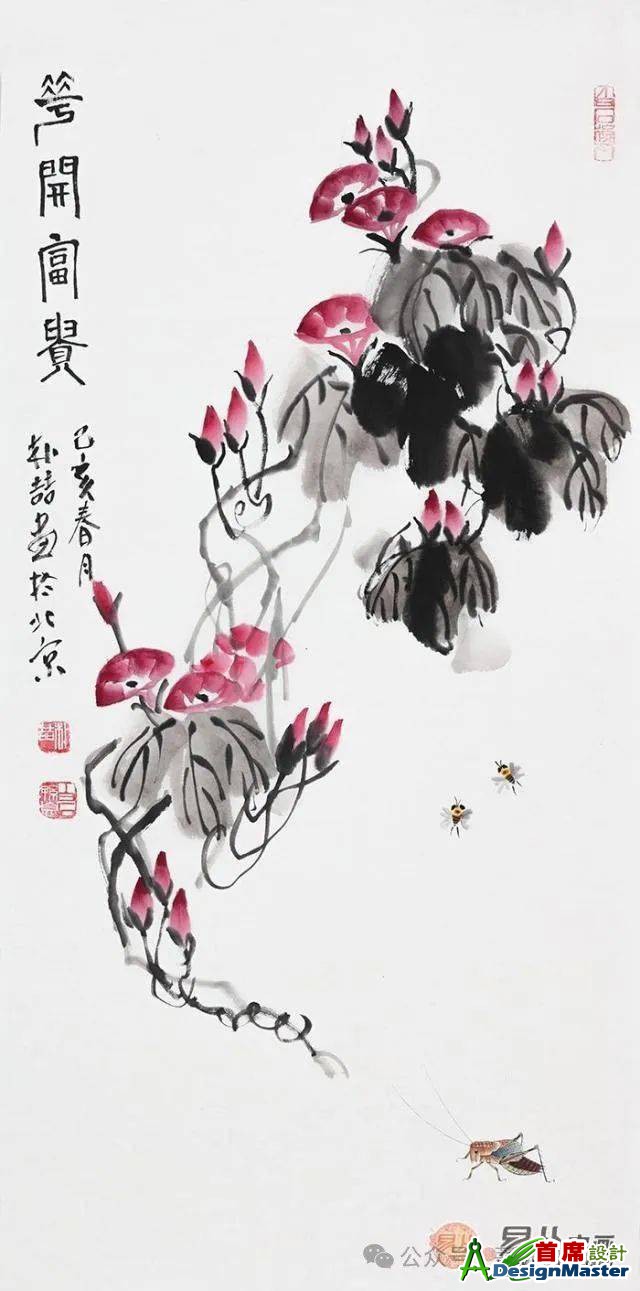 華開富貴
己亥春月
朴喆畫於北京
公众号
首席設計
ADesignMaster